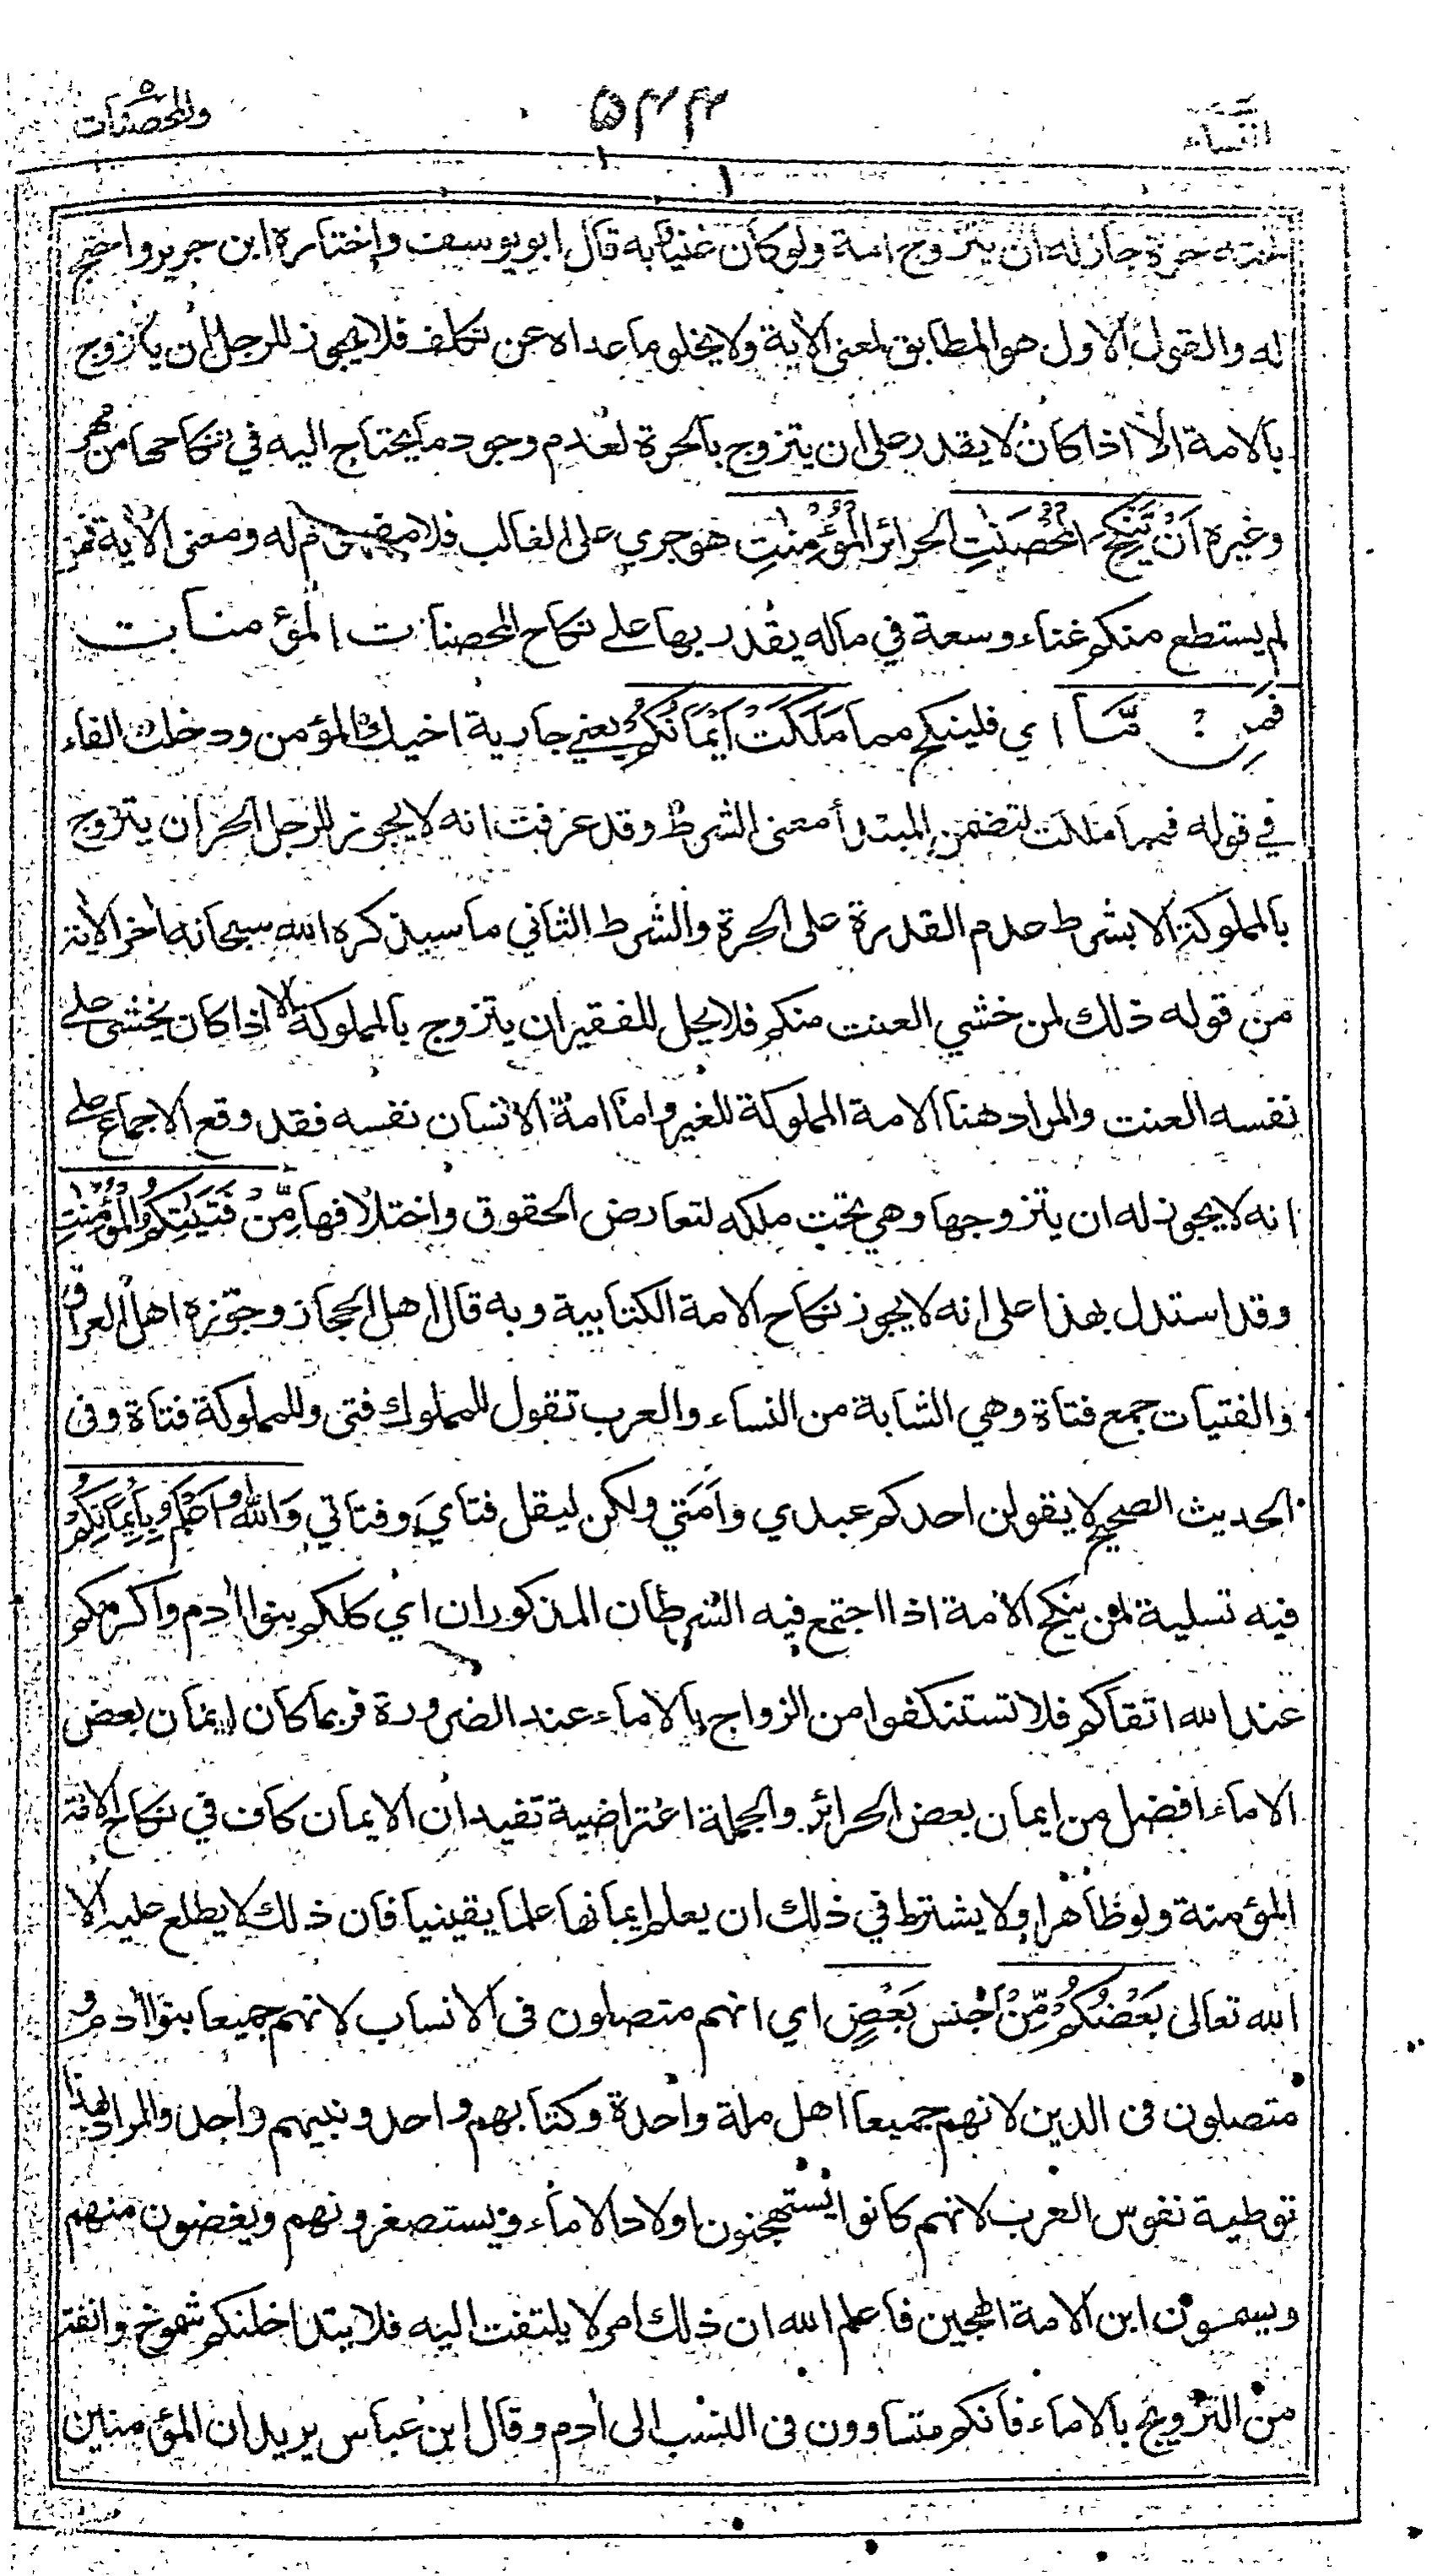 النساء
۵۴۴
والمحصنات
تحته حرة جاز له ان يتزوج امة ولو كان غنيا وبه قال ابو يوسف واختاره ابن جرير واحتج
له والقول الاول هو المطابق لمعنى الآية ولا يخلو ما عداه عن تكلف فلا يجوز للرجل ان يتزوج
بالامة الا اذا كان لا يقدر على ان يتزوج بالحرة لعدم وجود ما يحتاج اليه في نكاحها من مهر
وغيره اَنْ يَّنْكِحَ الْمُحْصَنٰتِ الحرائر الْمُؤْمِنٰتِ هو جري على الغالب فلا مفهوم له ومعنى الآية فمن
لم يستطع منكم غناء وسعة في ماله يقدر بها على نكاح المحصنات المؤمنات
فَمِنْ مَّا اي فلينكح مما مَلَكَتْ اَيْمَانُكُمْ يعني جارية اخيك المؤمن ودخلت الفاء
في قوله فمما ملكت لتضمن المبتدأ معنى الشرط وقد عرفت انه لا يجوز للرجل الحر ان يتزوج
بالمملوكة الا بشرط عدم القدرة على الحرة والشرط الثاني ما سيذكره الله سبحانه اخر الآية
من قوله ذلك لمن خشي العنت منكم فلا يحل للفقير ان يتزوج بالمملوكة الا اذا كان يخشى على
نفسه العنت والمراد هنا الامة المملوكة للغير واما امة الانسان نفسه فقد وقع الاجماع على
انه لا يجوز له ان يتزوجها وهي تحت ملكه لتعارض الحقوق واختلافها مِّنْ فَتَيٰتِكُمُ الْمُؤْمِنٰتِ
وقد استدل بهذا على انه لا يجوز نكاح الامة الكتابية وبه قال اهل الحجاز وجوّزه اهل العراق
والفتيات جمع فتاة وهي الشابة من النساء والعرب تقول للمملوك فتى وللمملوكة فتاة وفى
الحديث الصحيح لا يقولن احدكم عبدي وأَمَتي ولكن ليقل فتايَ وفتاتي وَاللّٰهُ اَعْلَمُ بِاِيْمَانِكُمْ
فيه تسلية لمن ينكح الامة اذا اجتمع فيه الشرطان المذكوران اي كلكم بنوا آدم واكرمكم
عند الله اتقاكم فلا تستنكفوا من الزواج بالاماء عند الضرورة فربما كان ايمان بعض
الاماء افضل من ايمان بعض الحرائر والجملة اعتراضية تفيد ان الايمان كاف في نكاح الامة
المؤمنة ولو ظاهرا ولا يشترط في ذلك ان يعلم ايمانها علما يقينيا فان ذلك لا يطلع عليه الا
الله تعالى بَعْضُكُمْ مِّنْ جنس بَعْضٍ اي انهم متصلون فى الانساب لانهم جميعا بنوا آدم و
متصلون فى الدين لانهم جميعا اهل ملة واحدة وكتابهم واحد ونبيهم واحد والمراد بهذا
توطية نفوس العرب لانهم كانوا يستهجنون اولاد الاماء ويستصغرونهم ويغضون منهم
ويسمون ابن الامة الهجين فاعلم الله ان ذلك امر لا يلتفت اليه فلا يتداخلنكم شموخ وانفة
من التزويج بالاماء فانكم متساوون فى النسب الى آدم وقال ابن عباس يريد ان المؤمنين